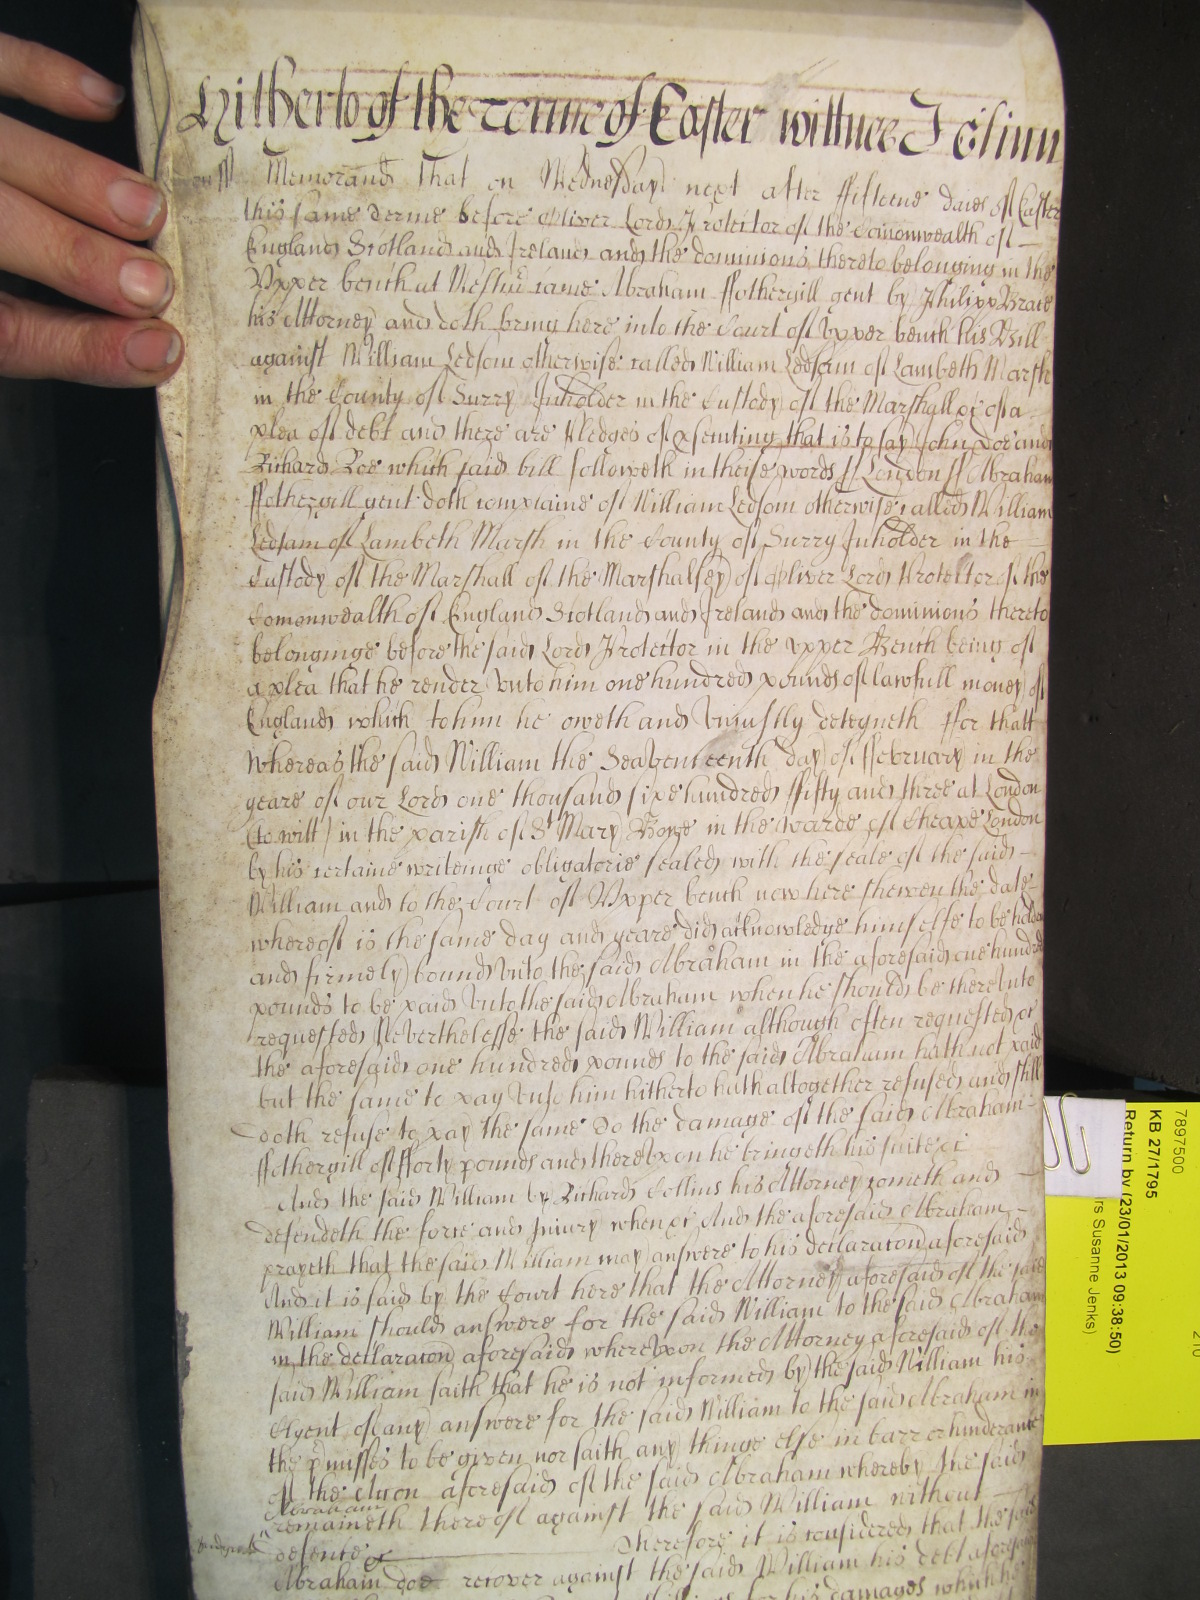 Hitherto of the terme of Easter wittnes J Glinn
Memorand That on Wednesday next after fifteene daies of Easter
this same Terme before Oliver Lord Protector of the Comonwealth of
England Scotland and Ireland and the dominions thereto belonging in the
Vpper bench at Westm came Abraham ffothergill gent by Philipp Brace
his Attorney and doth bring here into the Court of Vpper bench his Bill
against William Ledsom otherwise called William Ledsam of Lambeth Marsh
in the County of Surry Inholder in the Custody of the Marshall &c of a
plea of debt and there are pledges of psecuting that is to say John Doe and
Richard Roe which said bill followeth in theise words ss London ss Abraham
ffothergill gent doth complaine of William Ledsom otherwise called William
Ledsam of Lambeth Marsh in the County of Surry Inholder in the
Custody of the Marshall of the Marshalsey of Oliver Lord Protector of the
Comonwealth of England Scotland and Ireland and the dominions thereto
belonginge before the said Lord Protector in the vpper Bench being of
a plea that he render vnto him one hundred pounds of lawfull money of
England which to him he oweth and vniustly deteyneth ffor thatt
whereas the said William the Seaventeenth day of ffebruary in the
yeare of our Lord one thousand sixe hundred ffifty and three at London
(to witt) in the parish of St Mary Bowe in the warde of Cheape London
by his certaine writeinge obligatorie sealed with the seale of the said
William and to the Court of Vpper bench now here shewen the date
whereof is the same day and yeare did acknowledge himselfe to be holden
and firmely bound vnto the said Abraham in the aforesaid one hundred
pounds to be paid vnto the said Abraham when he should be therevnto
requested Neverthelesse the said William although often requested &c
the aforesaid one hundred pounds to the said Abraham hath not paid
but the same to pay vnto him hitherto hath altogether refused and still
doth refuse to pay the same To the damage of the said Abraham
ffothergill of fforty pounds and therevpon he bringeth his suite &c
And the said William by Richard Collins his Attorney cometh and
defendeth the force and Iniury when &c And the aforesaid Abraham
prayeth that the said William may answere to his declaracon aforesaid
And it is said by the Court here that the Attorney aforesaid of the said
William should answere for the said William to the said Abraham
in the declaracon aforesaid wherevpon the Attorney aforesaid of the
said William saith that he is not informed by the said William his
Clyent of any answere for the said William to the said Abraham in
the pmisses to be given nor saith any thinge else in barr or hinderance
of the accon aforesaid of the said Abraham whereby the said
Abraham
remaineth thereof against the said William without
defence &c Therefore it is considered that the said
Abraham doe recover against the said William his debt aforesaid
for his damages which he
7897500
KB 27/1795
Return by (23/01/2013 09:38:50)
rs Susanne Jenks)